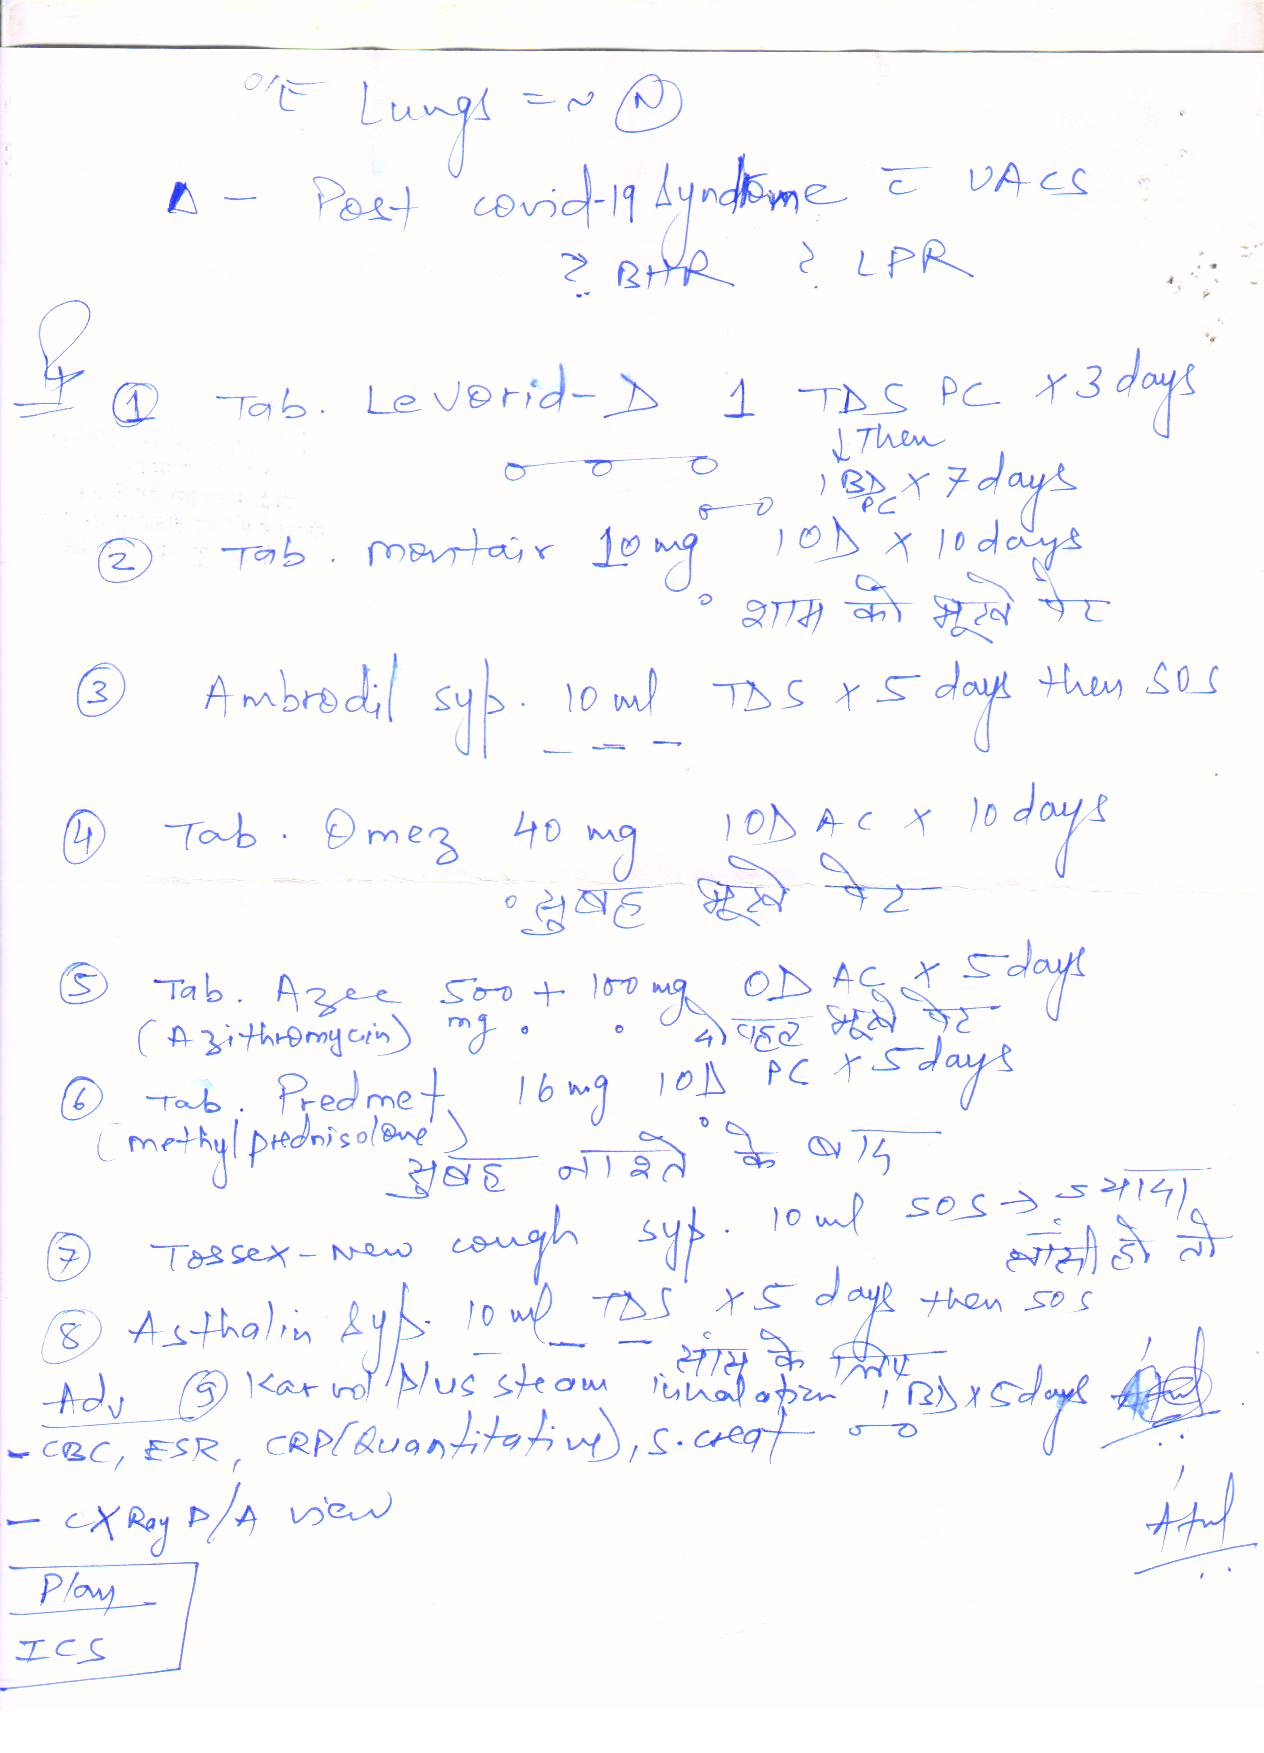 O/E Lungs = ~ N
Δ - Post covid-19 Syndrome c̄ UACS
? BHR ? LPR
① Tab. Levorid-D 1 TDS PC x 3 days
↓ Then
1 BD x 7 days
PC
② Tab. Montair 10 mg 1OD x 10 days
शाम को भूखे पेट
③ Ambrodil syp. 10 ml TDS x 5 days then SOS
④ Tab. Omez 40 mg 1OD AC x 10 days
सुबह भूखे पेट
⑤ Tab. Azee 500 + 100 mg OD AC x 5 days
(Azithromycin) mg दोपहर भूखे पेट
⑥ Tab. Predmet 16 mg 1OD PC x 5 days
(methylprednisolone)
सुबह नाश्ते के बाद
⑦ Tossex-New cough syp. 10 ml SOS → ज्यादा
खांसी हो तो
⑧ Asthalin Syp. 10 ml TDS x 5 days then SOS
सांस के लिए
Adv ⑨ Karvol plus steam inhalation 1 BD x 5 days
- CBC, ESR, CRP (Quantitative), S. creat
- CX Ray P/A view
Atul
Plan
ICS